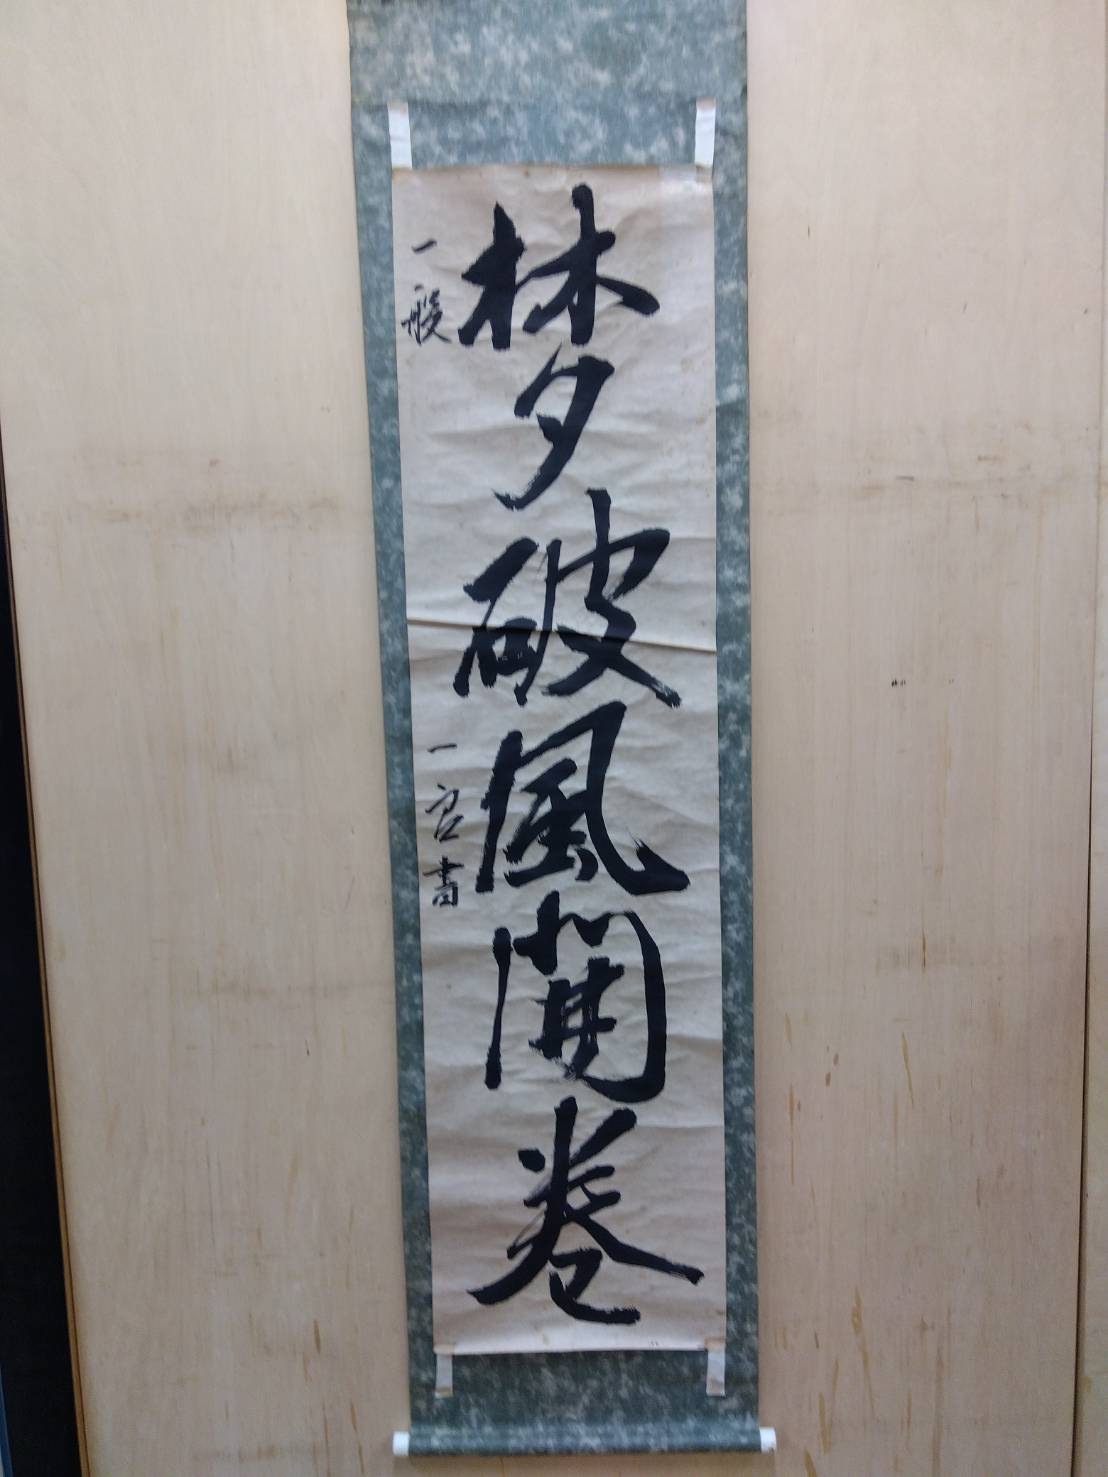 梦破風開巻
一般
一 書